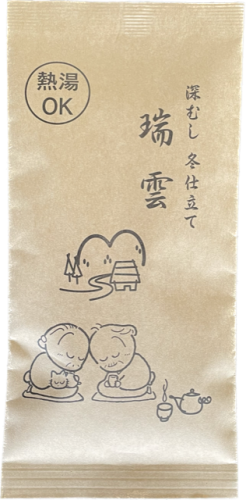 熱湯
OK
深むし 冬仕立て
瑞雲